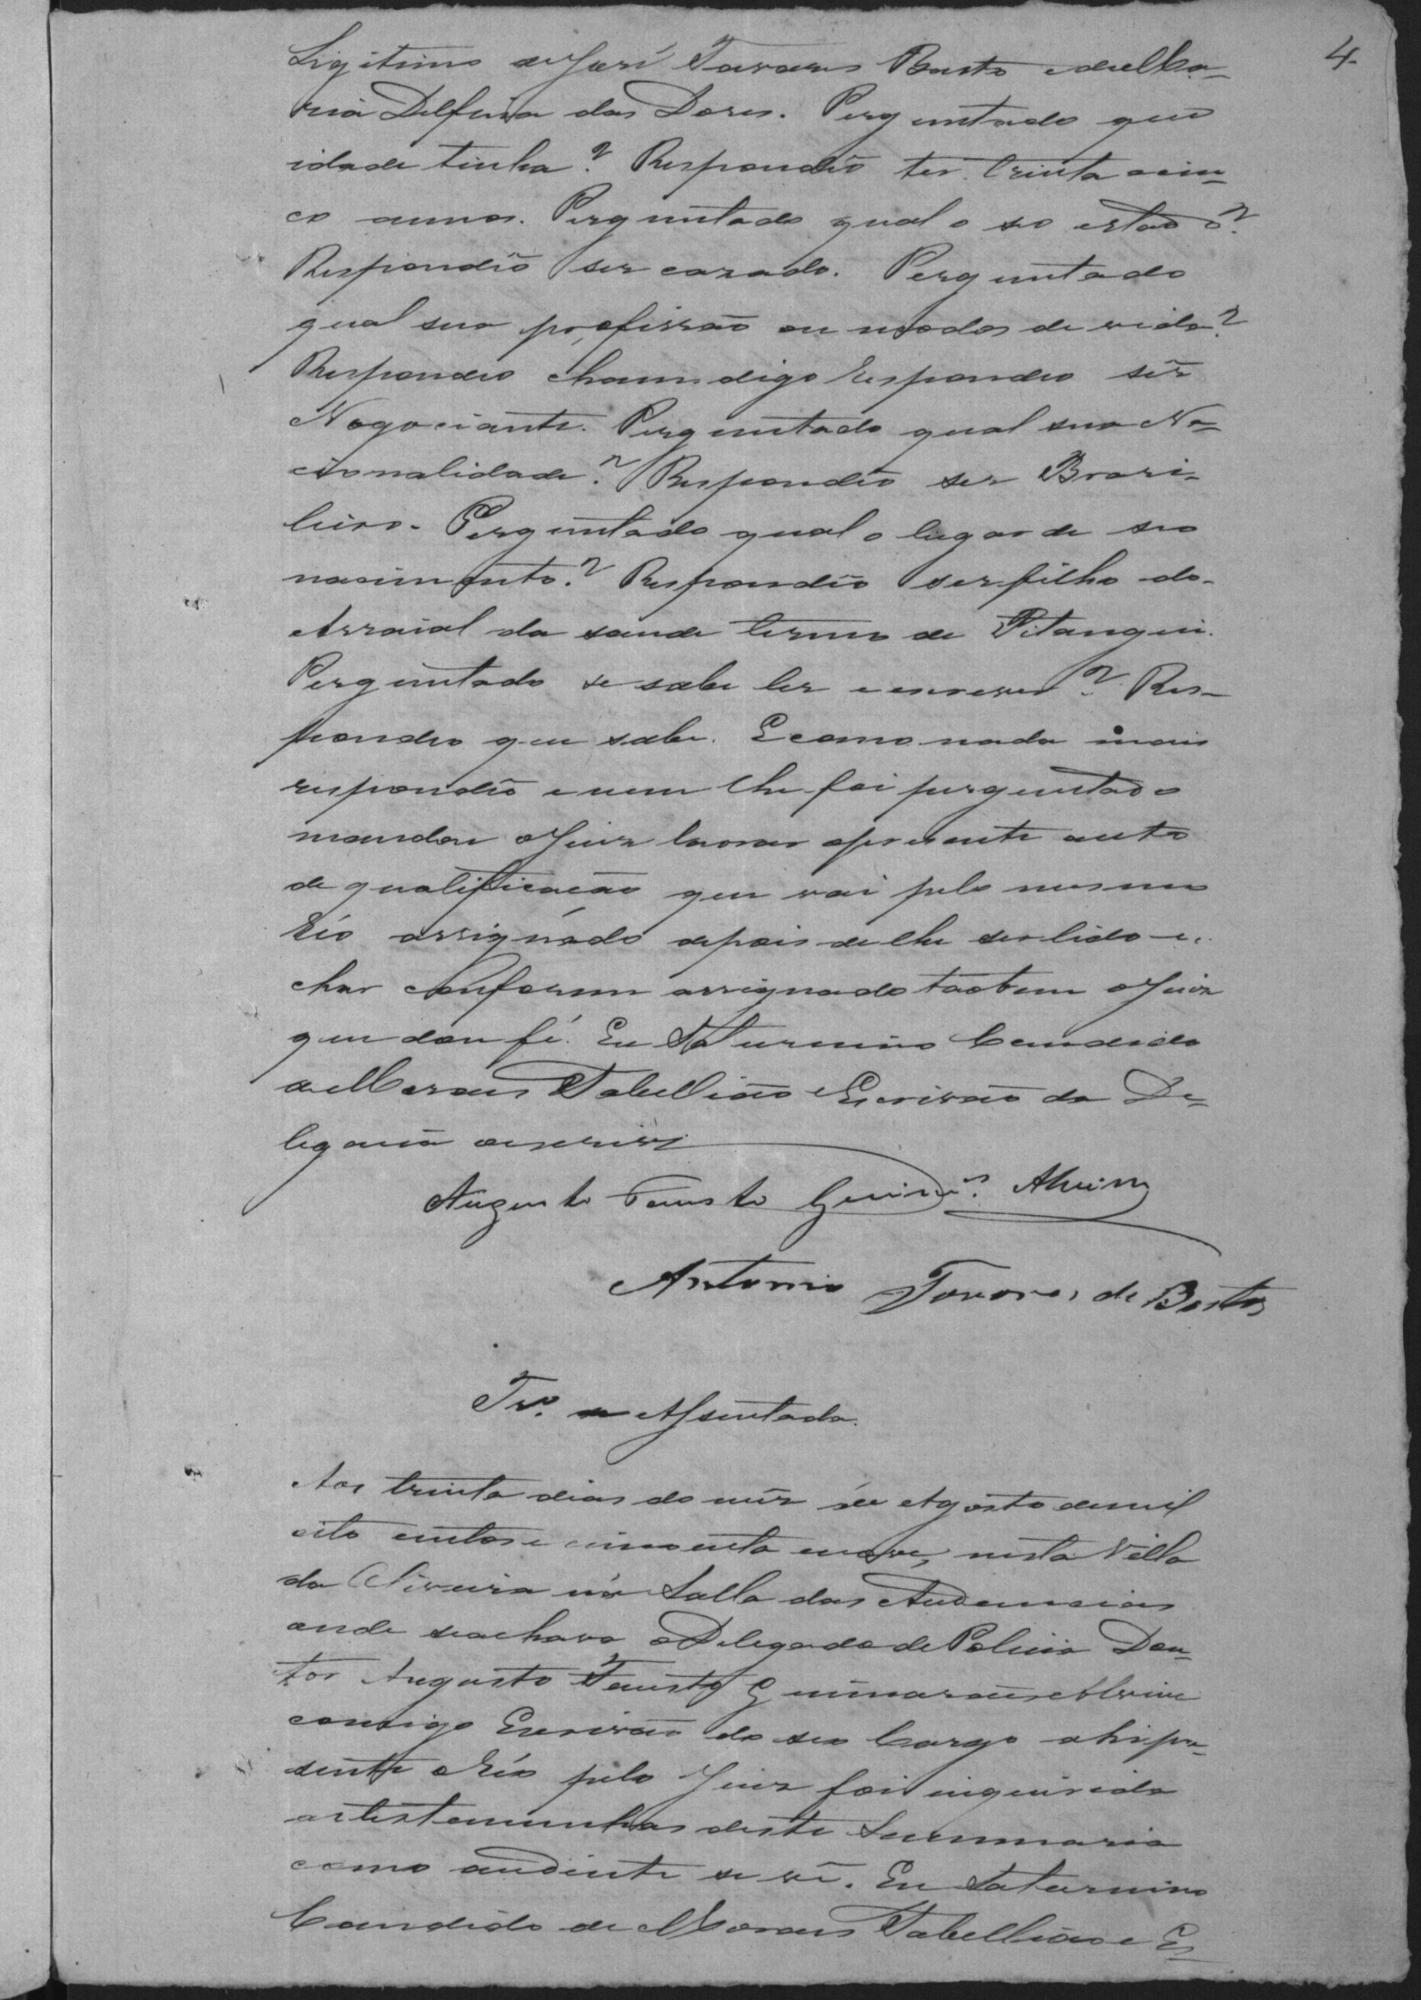 4
Ligitimo de José Tavares Basto e de Ma-
ria Delfina das Dores. Perguntado que
idade tinha? Respondeo ter trinta e cin-
co annos. Perguntado qual o so estado?
Respondeo ser cazado. Perguntado
qual sua profissão ou modos de vida?
Respondeo chamdigo respondeo ser
Nogociante. Perguntado qual sua Na-
cionalidade? Respondeo ser Brazi-
leiro. Perguntado qual o lugar de seo
nacimento? Respondeo ser filho do
Arraial da saude termo de Pitangui.
Perguntado se sabe ler e escrever? Res-
pondeo que sabe. E como nada mais
respondeo e nem lhe foi perguntado
mandou o Juiz lavrar apresente auto
de qualificação que vai pelo mesmo
réo assignado depois de lhe ser lido e
char conforme assignado taobem o Juiz
que dou fé. Eu Saturnino Candido
de Moraes Tabellião e Escrivão da De-
legacia oescrivi
Augusto Fausto Guim.es Alvim
Antonio Tavares de Bastos
Tr.º de Assentada.
Aos trinta dias do mez de Agosto de mil
oito centos e cincoenta enove, nesta Villa
da Oliveira na Salla das Audencias
onde seachava o Delegado de Policia Dou-
tor Augusto Fausto Guimaraens e Alvim
comigo Escrivão do seo Cargo ahi pre-
sente o réo pelo Juiz foi inquirida
as testemunhas deste Summario
como audiente se vê. Eu Saturnino
Candido de Moraes Tabellião e Es-